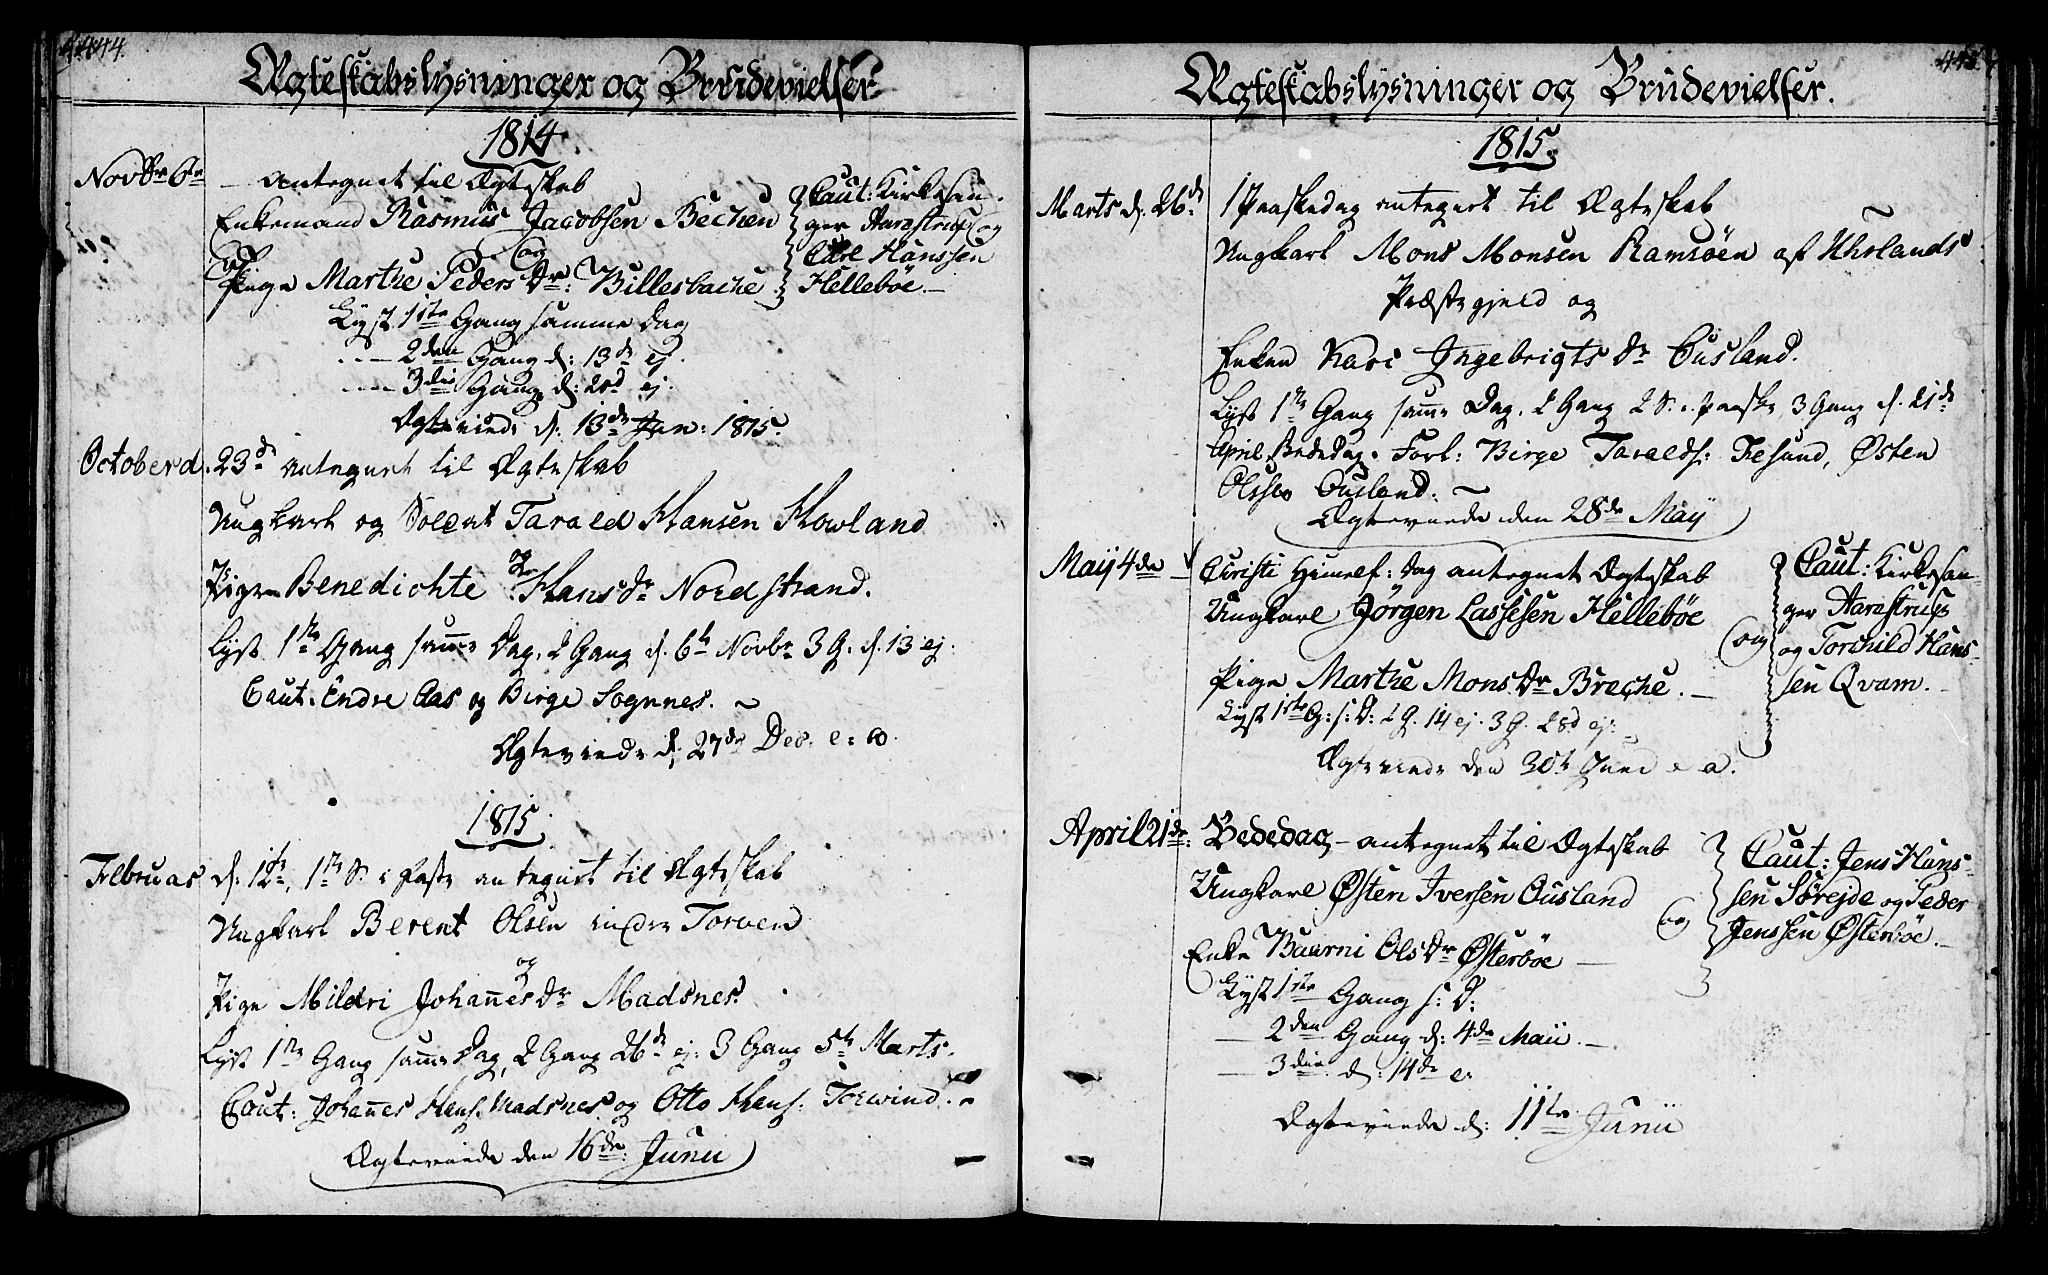 444.
Ægteskabslysninger og Brudevielser
1814.
Novbr 6te – antegnet til Ægteskab
Enkemand Rasmus Jacobsen Bechen
og
Pige Marthe Peders Dr: Billesbache
Caut: Kirkesan-
ger Aarestrup og
Carl Hanssen
Hellebøe.–
Lyst 1ste Gang samme Dag
---- 2den Gang d: 13d ej.
---- 3die Gang d: 20d ej.
Ægteviede d: 13de Jan: 1815.
October d. 23d antegnet til Ægteskab
Ungkarl og Soldat Tarald Hansen Howland
og
Pigen Benedichte Hans Dr Nordstrand.
Lyst 1te Gang samme Dag, 2 Gang d. 6t Novbr 3 G. d. 13 ej.
Caut. Endre Aas og Birge Sognnes. ~
Ægteviede d; 27de Dec. e: a.
1815.
Februar d: 12te, 1te S. i Faste antegnet til Ægteskab
Ungkarl Berent Olsen indre Torven
og
Pige Mildri Johannes Dr Madsnes.
Lyst 1te Gang samme Dag, 2 Gang 26d ej: 3 Gang 5te Marts.
Caut: Johannes Hans. Madsnes og Otto Hans: Torwind.
Ægteviede den 16de Junii
445
Ægteskabslysninger og Brudevielser.
1815.
Marts d: 26d 1 Paaskedag antegnet til Ægteskab
Ungkarl Mons Monsen Ramsøen af Uhrlands
Præstegjeld og
Enken Kari Ingebrigts Dr Ousland.
Lyst 1te Gang samme Dag, 2 Gang 2 S. i Paaske, 3 Gang d. 21de
April Bededag. Forl: Birge Taralds: Tesund, Østen
Olssen Ousland. ~
Ægteviede den 28de Maij
Maij 4de – Christi Himelf: Dag antegnet Ægteskab
Ungkarl Jørgen Lassesen Hellebøe
og
Pige Marthe Mons Dr Breche. –
Caut: Kirkesan-
ger Aarestrup
og Torchild Hans-
sen Qvam.
Lyst 1ste G: s: D: 2 G. 14 ej. 3 G. 28d ej:
Ægteviede den 30te Junii e a.
April 21de: Bededag – antegnet til Ægteskab
Ungkarl Østen Iversen Ousland
og
Enke Baarni Ols Dr Østerbøe –
Caut: Jens Hans-
sen Sørejde og Peder
Jenssen Østerbøe. –
Lyst 1ste Gang s: D:
– 2den Gang d: 4de Maii. –
– 3die d: 14de e.
Ægteviede d: 11te Junii